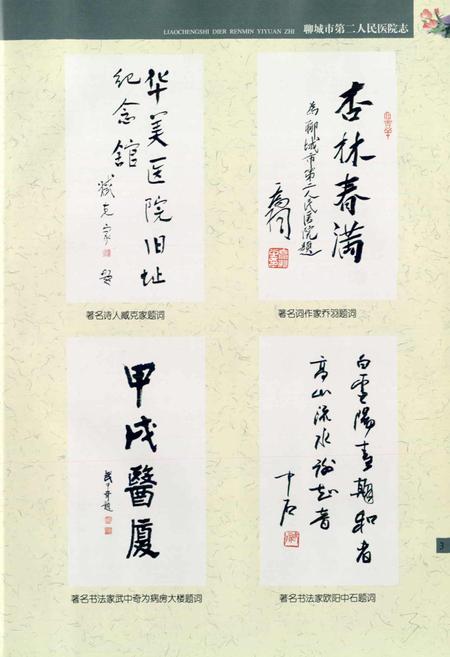 LIAOCHENGSHI DIER RENMIN YIYUAN ZHI 聊城市第二人民医院志
华美医院旧址
纪念舘
臧克家
著名诗人臧克家题词
杏林春满
为聊城市第二人民医院题
乔羽
著名词作家乔羽题词
甲戌醫廈
武中奇题
著名书法家武中奇为病房大楼题词
白雪陽春翹和者
高山流水謝知音
中石
著名书法家欧阳中石题词
3